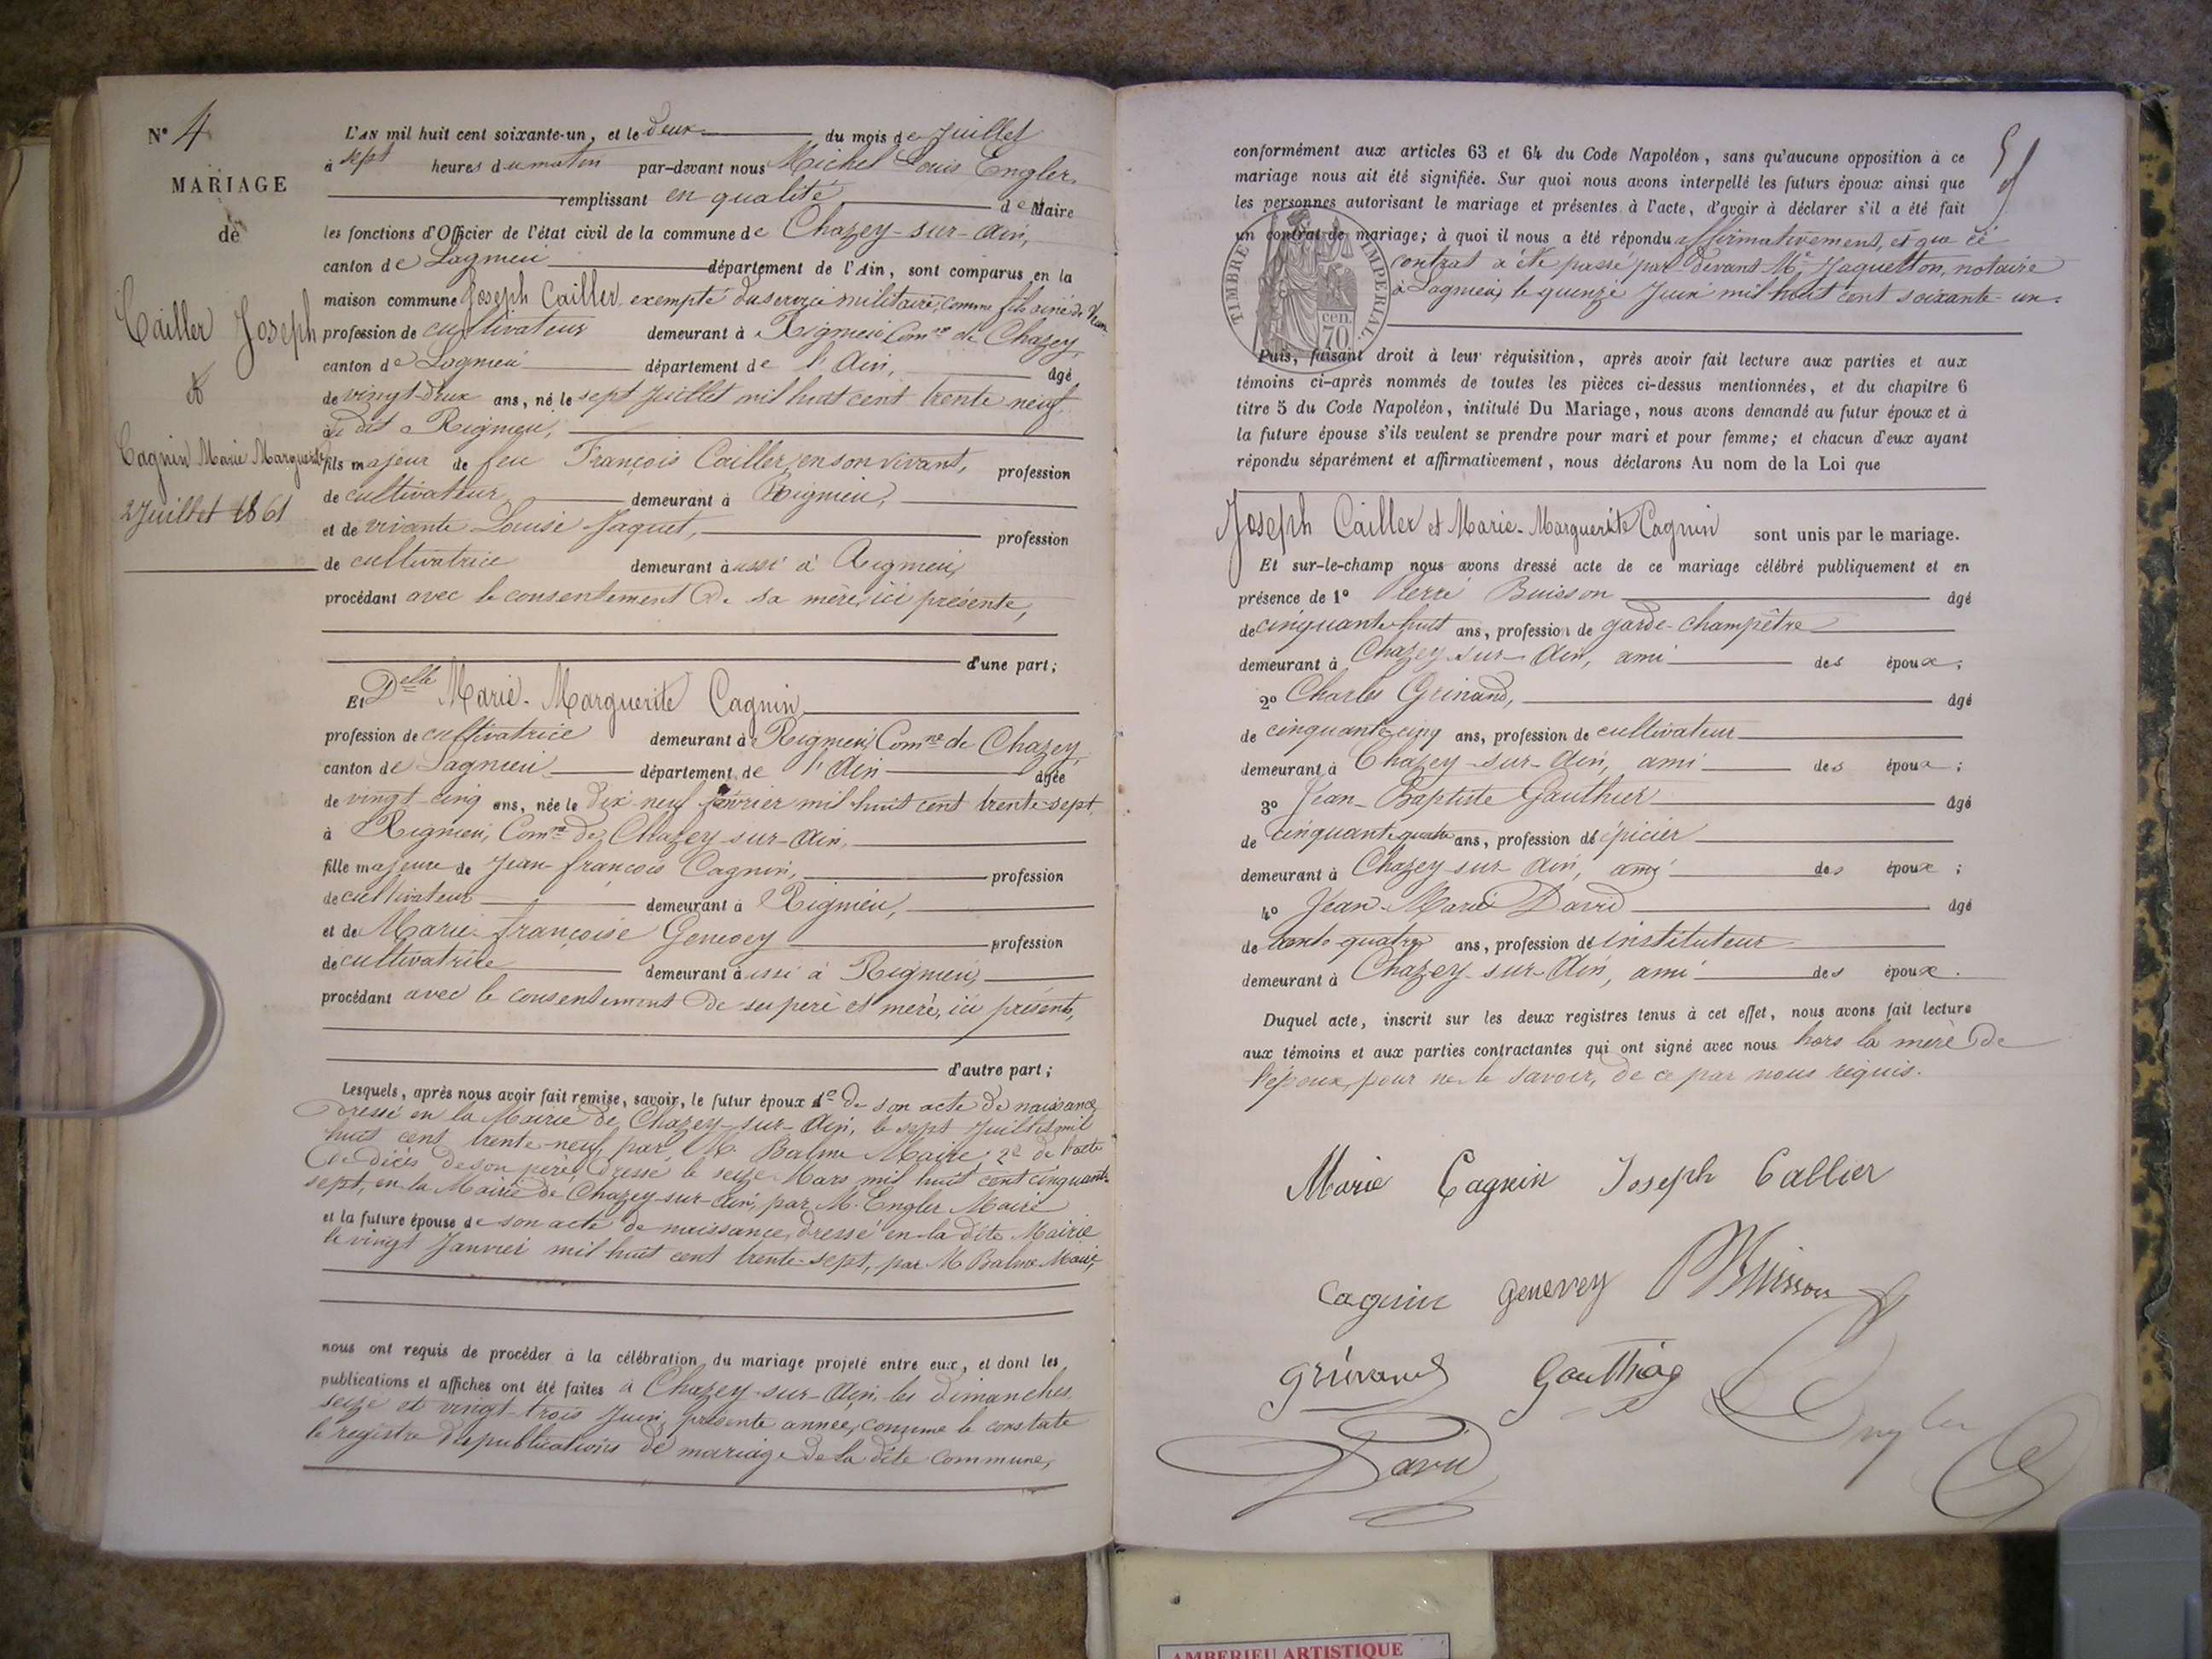 N° 4
MARIAGE
de
Cailler Joseph
&
Cagnin Marie Marguerite
2 Juillet 1861
L'AN mil huit cent soixante-un, et le deux du mois de Juillet
à sept heures du matin par-devant nous Michel Louis Engler,
remplissant en qualité de Maire
les fonctions d'Officier de l'état civil de la commune de Chazey-sur-Ain,
canton de Lagnieu département de l'Ain, sont comparus en la
maison commune Joseph Cailler exempté du service militaire, comme fils ainé de
profession de cultivateur demeurant à Rignieu Comne de Chazey,
canton de Lagnieu département de l'Ain, âgé
de vingt-deux ans, né le sept Juillet mil huit cent trente neuf,
au dit Rignieu,
fils majeur de feu François Cailler, en son vivant, profession
de cultivateur demeurant à Rignieu,
et de vivante Louise Jaquet, profession
de cultivatrice demeurant aussi à Rignieu,
procédant avec le consentement de sa mère, ici présente,
d'une part;
Et Delle Marie-Marguerite Cagnin,
profession de cultivatrice demeurant à Rignieu, Comne de Chazey,
canton de Lagnieu département de l'Ain âgée
de vingt-cinq ans, née le dix-neuf février mil huit cent trente-sept,
à Rignieu, Comne de Chazey-sur-Ain,
fille majeure de Jean-françois Cagnin, profession
de cultivateur demeurant à Rignieu,
et de Marie-françoise Genevey profession
de cultivatrice demeurant aussi à Rignieu,
procédant avec le consentement de ses père et mère, ici présents,
d'autre part;
Lesquels, après nous avoir fait remise, savoir, le futur époux 1e de son acte de naissance
dressé en la Mairie de Chazey-sur-Ain, le sept Juillet mil
huit cent trente-neuf, par M. Balme Maire, 2e de l'acte
de décès de son père, dressé le seize Mars mil huit cent cinquante
sept, en la Mairie de Chazey-sur-Ain, par M. Engler Maire
et la future épouse de son acte de naissance, dressé en la dite Mairie
le vingt Janvier mil huit cent trente-sept, par M. Balme Maire,
nous ont requis de procéder à la célébration du mariage projeté entre eux, et dont les
publications et affiches ont été faites à Chazey-sur-Ain, les dimanches
seize et vingt-trois Juin, présente année, comme le constate
le registre des publications de mariage de la dite commune,
conformément aux articles 63 et 64 du Code Napoléon, sans qu'aucune opposition à ce
mariage nous ait été signifiée. Sur quoi nous avons interpellé les futurs époux ainsi que
les personnes autorisant le mariage et présentes à l'acte, d'avoir à déclarer s'il a été fait
un contrat de mariage; à quoi il nous a été répondu affirmativement, et que ce
contrat a été passé par devant Me Jaquetton, notaire
à Lagnieu, le quinze Juin mil huit cent soixante-un.
TIMBRE IMPERIAL
70 cen.
Puis, faisant droit à leur réquisition, après avoir fait lecture aux parties et aux
témoins ci-après nommés de toutes les pièces ci-dessus mentionnées, et du chapitre 6
titre 5 du Code Napoléon, intitulé Du Mariage, nous avons demandé au futur époux et à
la future épouse s'ils veulent se prendre pour mari et pour femme; et chacun d'eux ayant
répondu séparément et affirmativement, nous déclarons Au nom de la Loi que
Joseph Cailler et Marie-Marguerite Cagnin sont unis par le mariage.
Et sur-le-champ nous avons dressé acte de ce mariage célébré publiquement et en
présence de 1° Pierre Buisson âgé
de cinquante-huit ans, profession de garde-champêtre
demeurant à Chazey-sur-Ain, ami des époux;
2° Charles Grinand, âgé
de cinquante-cinq ans, profession de cultivateur
demeurant à Chazey-sur-Ain, ami des époux;
3° Jean-Baptiste Gauthier âgé
de cinquante-quatre ans, profession d'épicier
demeurant à Chazey-sur-Ain, ami des époux;
4° Jean-Marie David âgé
de trente-quatre ans, profession d'instituteur
demeurant à Chazey-sur-Ain, ami des époux.
Duquel acte, inscrit sur les deux registres tenus à cet effet, nous avons fait lecture
aux témoins et aux parties contractantes qui ont signé avec nous hors la mère de
l'époux, pour ne le savoir, de ce par nous requis.
Marie Cagnin Joseph Callier
Cagnin genevey PBuisson
grinand Gauthier
David Engler
AMBERIEU ARTISTIQUE